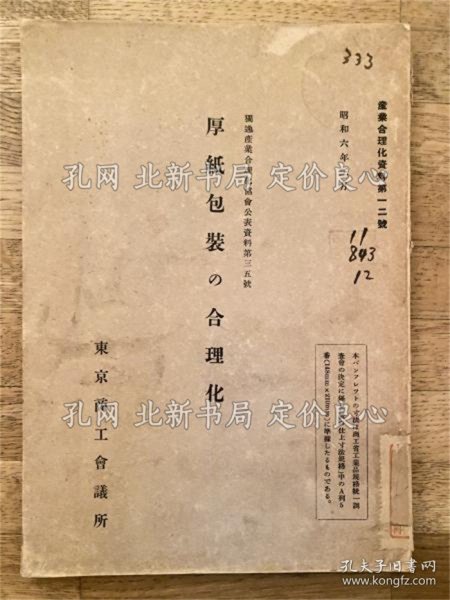 333
産業合理化資料第一二號
昭和六年
11
843
12
獨逸産業合理化協會公表資料第三五號
厚紙包裝の合理化
東京商工會議所
本パンフレツトの寸法は商工省工業品規格統一調
査會の決定に係る 仕上寸法規格 中のA列5
番(148mm×210mm)に準據したるものである。
孔网 北新书局 定价良心
孔网 北新书局 定价良心
孔网 北新书局 定价良心
孔夫子旧书网
www.kongfz.com